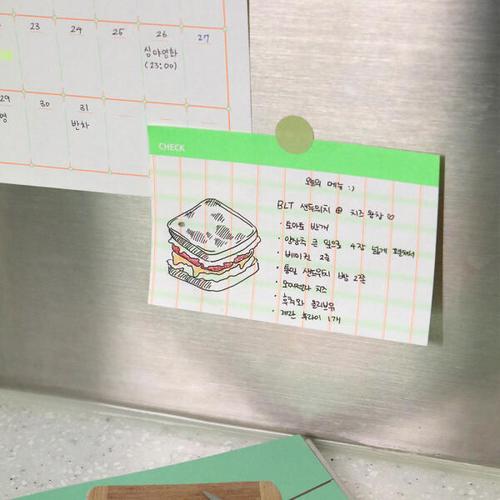 23 24 25 26 27
심야영화
(23:00)
29 30 31
영
반차
CHECK
오늘의 메뉴 :)
BLT 샌드위치 @ 치즈 왕창 ♡
· 토마토 반개
· 양상추 큰 잎으로 4장 넓게 포개서
· 베이컨 2줄
· 통밀 샌드위치 빵 2쪽
· 모짜렐라 치즈
· 후추와 올리브유
· 계란 후라이 1개